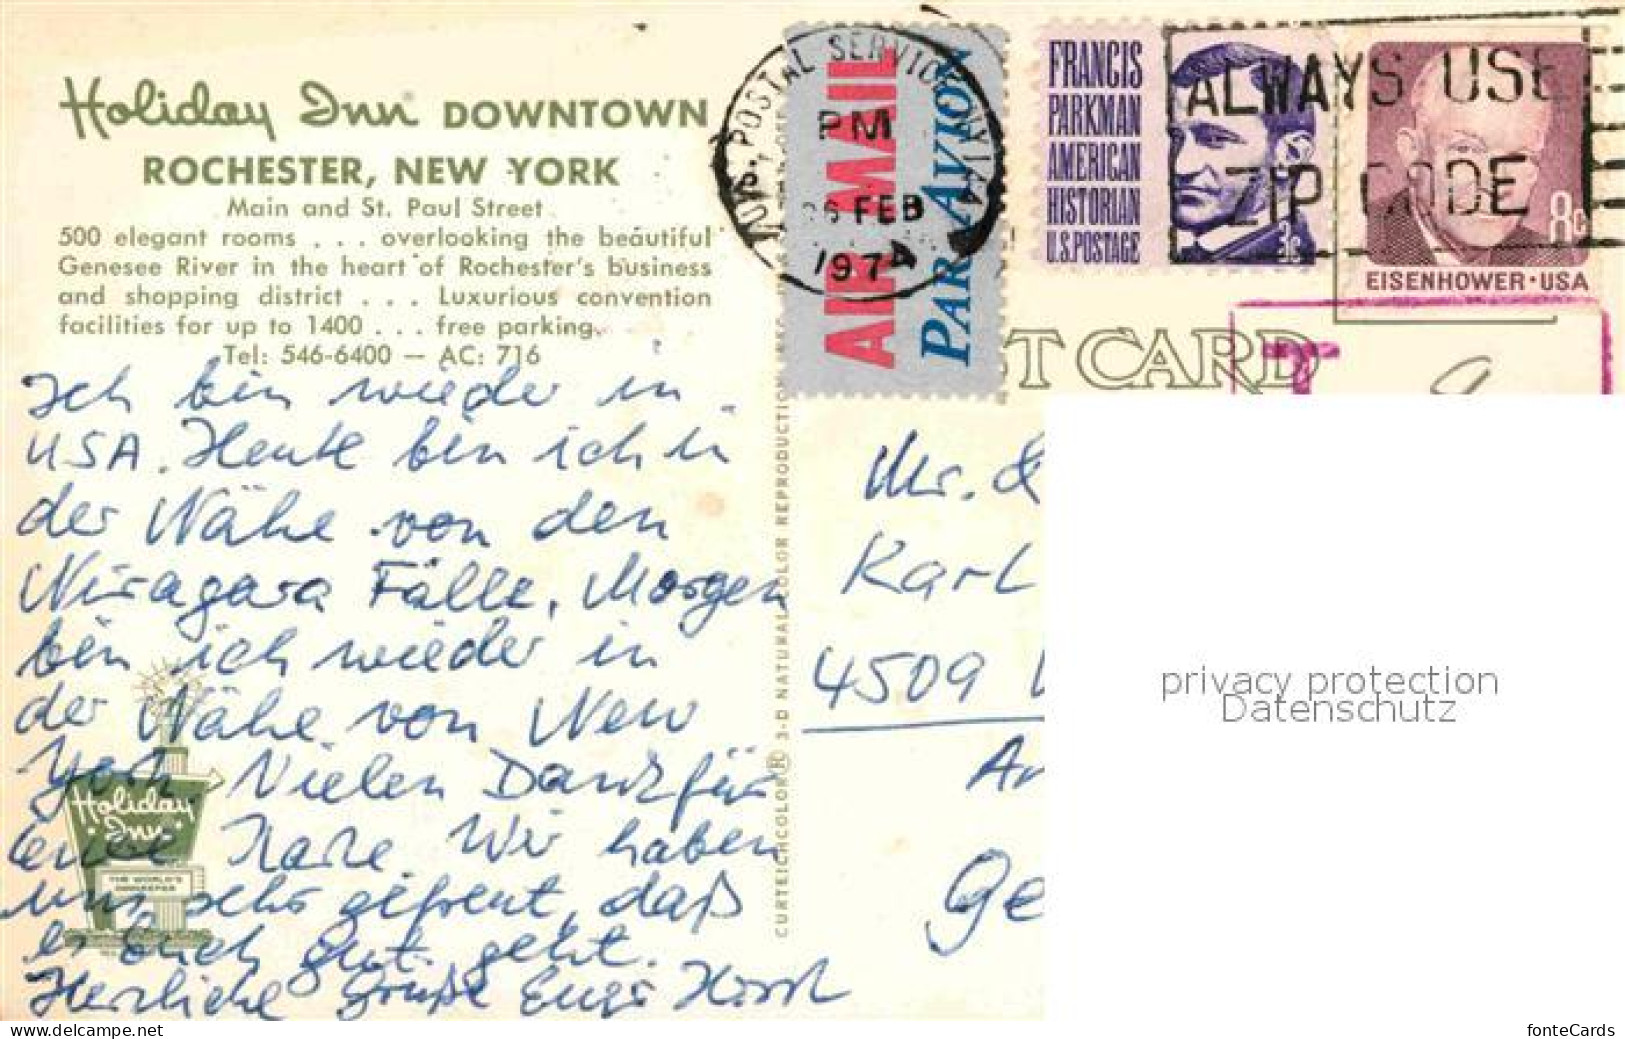 Holiday Inn DOWNTOWN
ROCHESTER, NEW YORK
Main and St. Paul Street
500 elegant rooms . . . overlooking the beautiful
Genesee River in the heart of Rochester's business
and shopping district . . . Luxurious convention
facilities for up to 1400 . . . free parking.
Tel: 546-6400 — AC: 716
Ich bin wieder in
USA. Heute bin ich in
der Nähe von den
Niragara Fälle, Morgen
bin ich wieder in
der Nähe von New
York Vielen Dank für
eure Karte. Wir haben
uns sehr gefreut, daß
es Euch gut geht.
Herzliche Grüße Euer Horst
Holiday
Inn
THE WORLD'S
INNKEEPER
CURTEICHCOLOR® 3-D NATURAL COLOR REPRODUCTION
POSTAL SERVICE
PM
26 FEB
1974
AIR MAIL
PAR AVION
FRANCIS
PARKMAN
AMERICAN
HISTORIAN
U.S.POSTAGE
3c
ALWAYS USE
ZIP CODE
8c
EISENHOWER·USA
T CARD
T
Mr. &
Karl
4509
Ge
privacy protection
Datenschutz
fonteCards